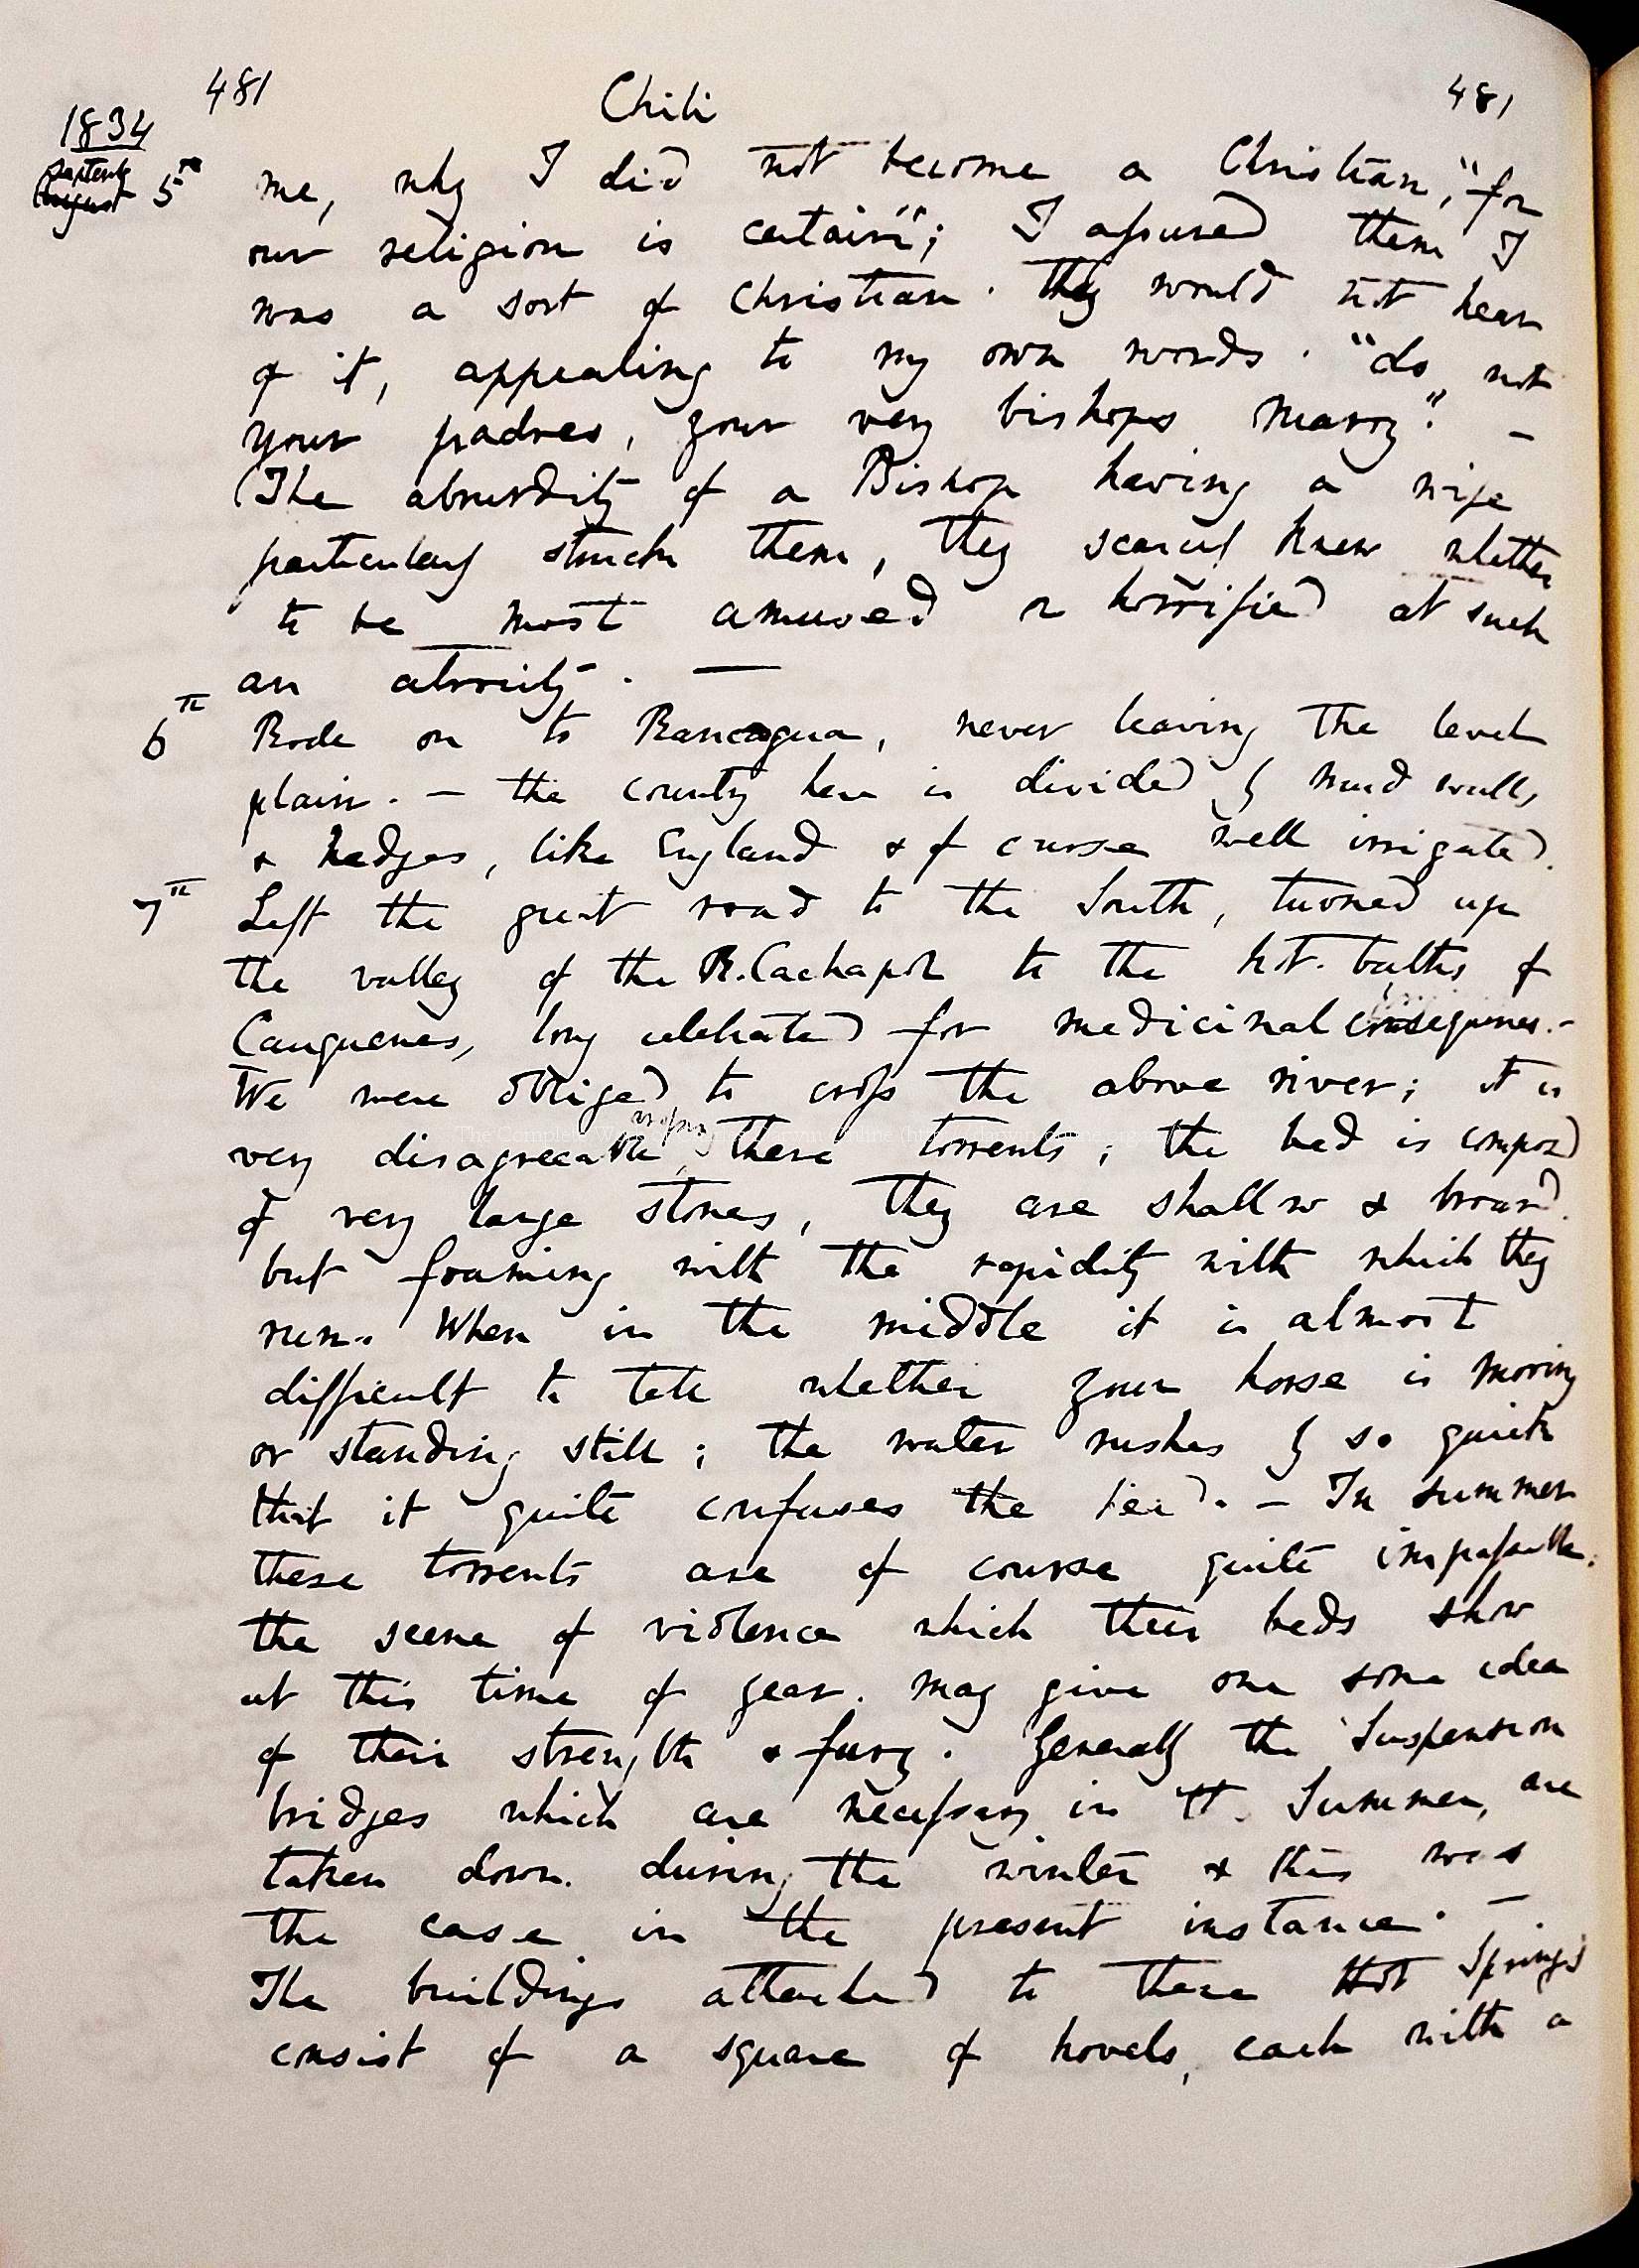 481 Chili 481
1834
September
August 5th me, why I did not become a Christian, "for
our religion is certain"; I assured them I
was a sort of Christian. They would not hear
of it, appealing to my own words. "do not
your padres, your very bishops marry". —
(The absurdity of a Bishop having a wife
particularly struck them, they scarcely knew whether
to be most amused or horrified at such
an atrocity. —
6th Rode on to Rancagua, never leaving the level
plain. — the country here is divided by mud walls,
& hedges, like England & of course well irrigated.
7th Left the great road to the South, turned up
the valley of the R. Cachapol to the hot. baths of
Cauquenes, long celebrated for medicinal —
We were obliged to cross the above river; it is
very disagreeable crossing these torrents; the bed is composed
of very large stones, they are shallow & broard.
but foaming with the rapidity with which they
run. When in the middle it is almost
difficult to tell whether your horse is moving
or standing still; the water rushes by so quick
that it quite confuses the head. — In summer
these torrents are of course quite impassable.
the scene of violence which their beds show
at this time of year. may give one some idea
of their strength & fury. Generally the Suspension
bridges which are necessary in the Summer, are
taken down. during the winter & this was
the case in the present instance. —
The buildings attached to these Hot Springs
consist of a square of hovels, each with a